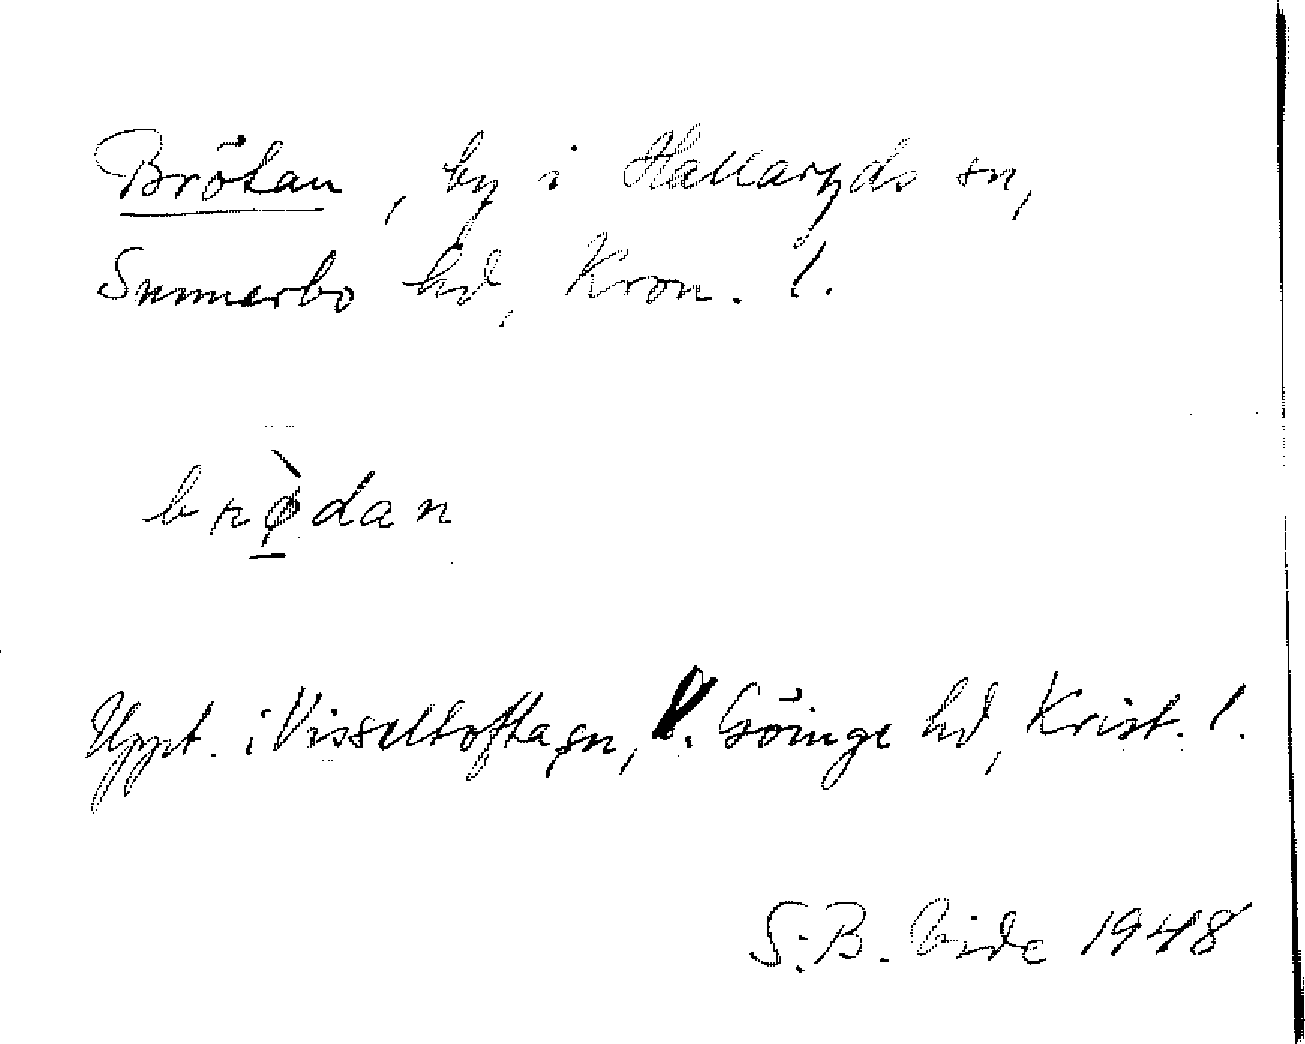 Brötan, by i Hallaryds sn,
Sunnerbo hd, Kron. l.
brø̀dan
Uppt. i Visseltofta sn, V. Göinge hd, Krist. l.
S. B. Vide 1948